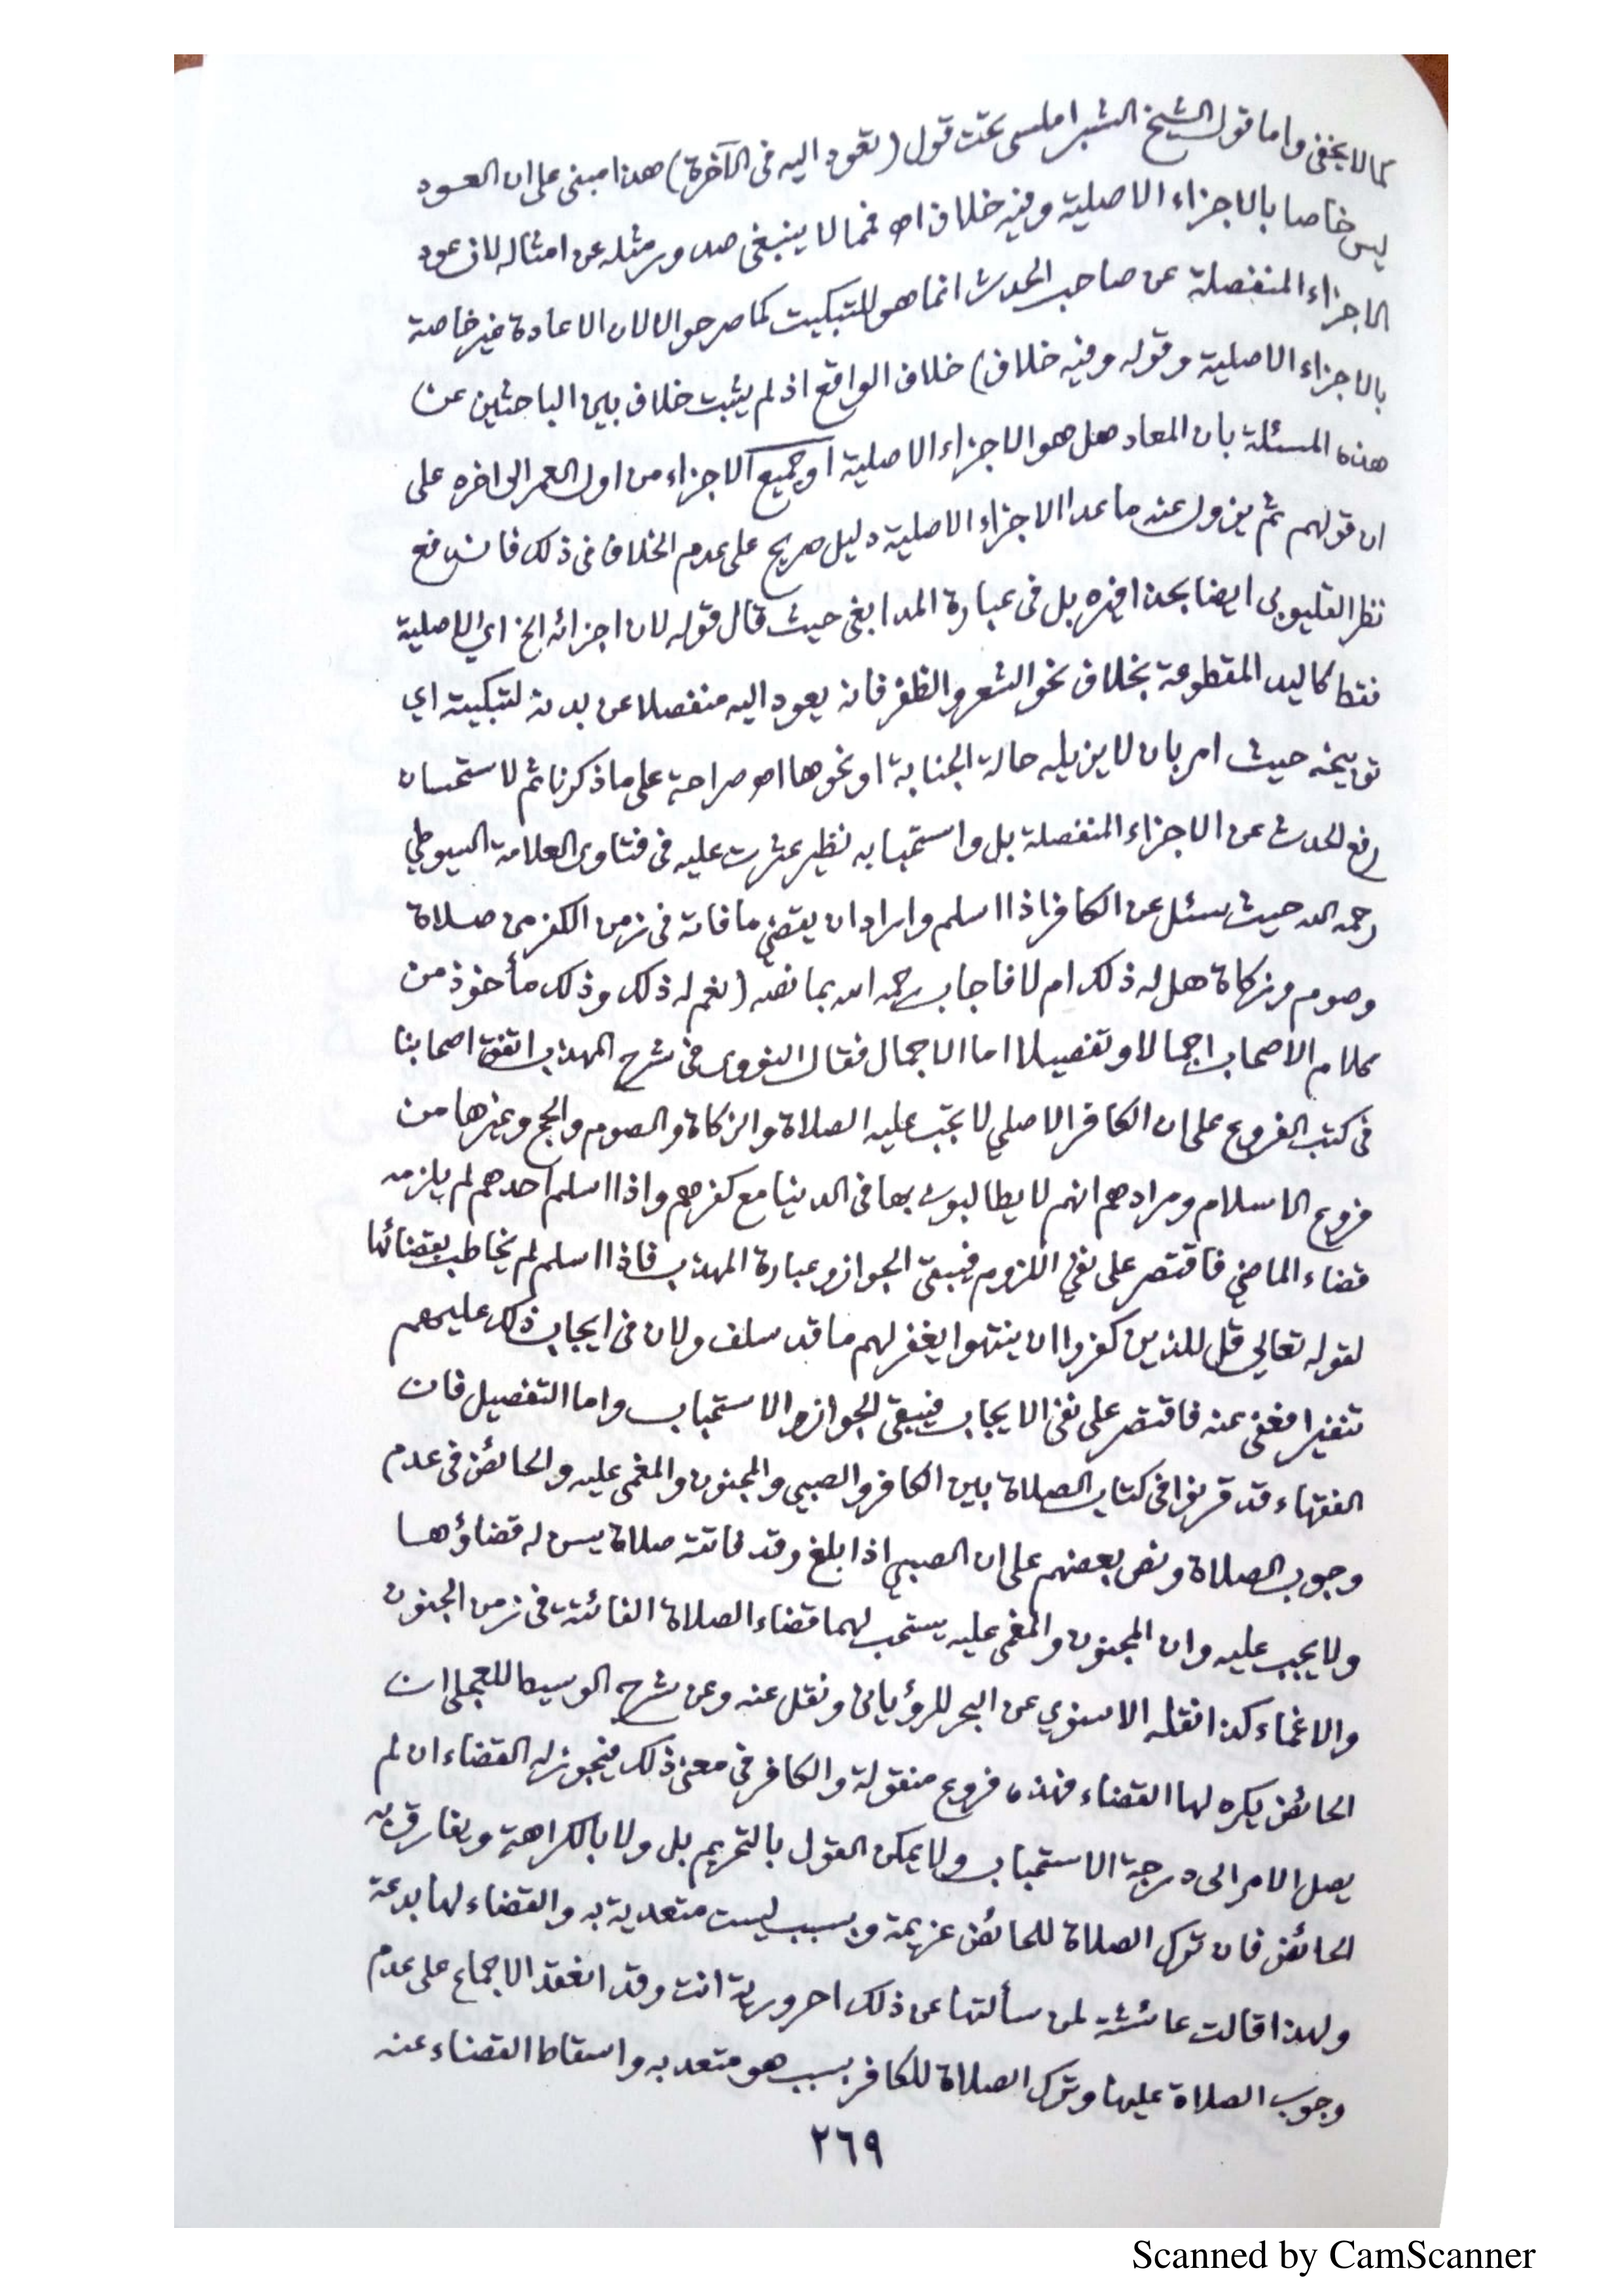 كما لا يخفى واما قول الشيخ الشبراملسى تحت قول (تعود اليه فى الآخرة) هذا مبنى على ان العود
ليس خاصا بالاجزاء الاصلية وفيه خلاف اه فمما لا ينبغى صدور مثله عن امثاله لان عود
الاجزاء المنفصلة عن صاحب الحدث انما هو للتبكيت كما صرحوا لا لان الاعادة غير خاصة
بالاجزاء الاصلية وقوله وفيه خلاف) خلاف الواقع اذ لم يثبت خلاف بين الباحثين عن
هذه المسئلة بان المعاد هل هو الاجزاء الاصلية او جميع الاجزاء من اول العمر الى اخره على
ان قولهم ثم يزول عنه ما عدا الاجزاء الاصلية دليل صريح على عدم الخلاف فى ذلك فاندفع
نظر القليوبى ايضا بحذافيره بل فى عبارة المدابغى حيث قال قوله لان اجزائه الخ اي الاصلية
فقط كاليد المقطوعة بخلاف نحو الشعر والظفر فانه يعود اليه منفصلا عن بدنه لتبكيته اي
توبيخه حيث امر بان لا يزيله حالة الجنابة او نحوها اه صراحة على ما ذكرنا ثم لاستحسان
رفع الحدث عن الاجزاء المنفصلة بل واستحبابه نظير عثرت عليه فى فتاوى العلامة السيوطي
رحمه الله حيث سئل عن الكافر اذا اسلم واراد ان يقضي ما فاته فى زمن الكفر من صلاة
وصوم وزكاة هل له ذلك ام لا فاجاب رحمه الله بما نصه (نعم له ذلك وذلك مأخوذ من
كلام الاصحاب اجمالا وتفصيلا اما الاجمال فقال النووى فى شرح المهذب اتفق اصحابنا
فى كتب الفروع على ان الكافر الاصلي لا تجب عليه الصلاة والزكاة والصوم والحج وغيرها من
فروع الاسلام ومرادهم انهم لا يطالبون بها فى الدنيا مع كفرهم واذا اسلم احدهم لم يلزمه
قضاء الماضي فاقتصر على نفي اللزوم فيبقى الجواز وعبارة المهذب فاذا اسلم لم يخاطب بقضائها
لقوله تعالي قل للذين كفروا ان ينتهوا يغفر لهم ما قد سلف ولان فى ايجاب ذلك عليهم
تنفيرا فعفى عنه فاقتصر على نفى الايجاب فيبقى الجواز والاستحباب واما التفصيل فان
الفقهاء قد قرنوا فى كتاب الصلاة بين الكافر والصبي والمجنون والمغمى عليه والحائض فى عدم
وجوب الصلاة ونص بعضهم على ان الصبي اذا بلغ وقد فاتته صلاة يسن له قضاؤها
ولا يجب عليه وان المجنون والمغمى عليه يستحب لهما قضاء الصلاة الفائتة فى زمن الجنون
والاغماء كذا نقله الاسنوي عن البحر للرؤيانى ونقل عنه وعن شرح الوسيط للعجلى ان
الحائض يكره لها القضاء فهذه فروع منقولة والكافر فى معنى ذلك فيجوز له القضاء ان لم
يصل الامر الى درجة الاستحباب ولا يمكن القول بالتحريم بل ولا بالكراهة ويفارق به
الحائض فان ترك الصلاة للحائض عزيمة وبسبب ليست متعدية به والقضاء لها بدعة
ولهذا قالت عائشة لمن سألتها عن ذلك احرورية انت وقد انعقد الاجماع على عدم
وجوب الصلاة عليها وترك الصلاة للكافر بسبب هو متعد به واسقاط القضاء عنه
٢٦٩
Scanned by CamScanner